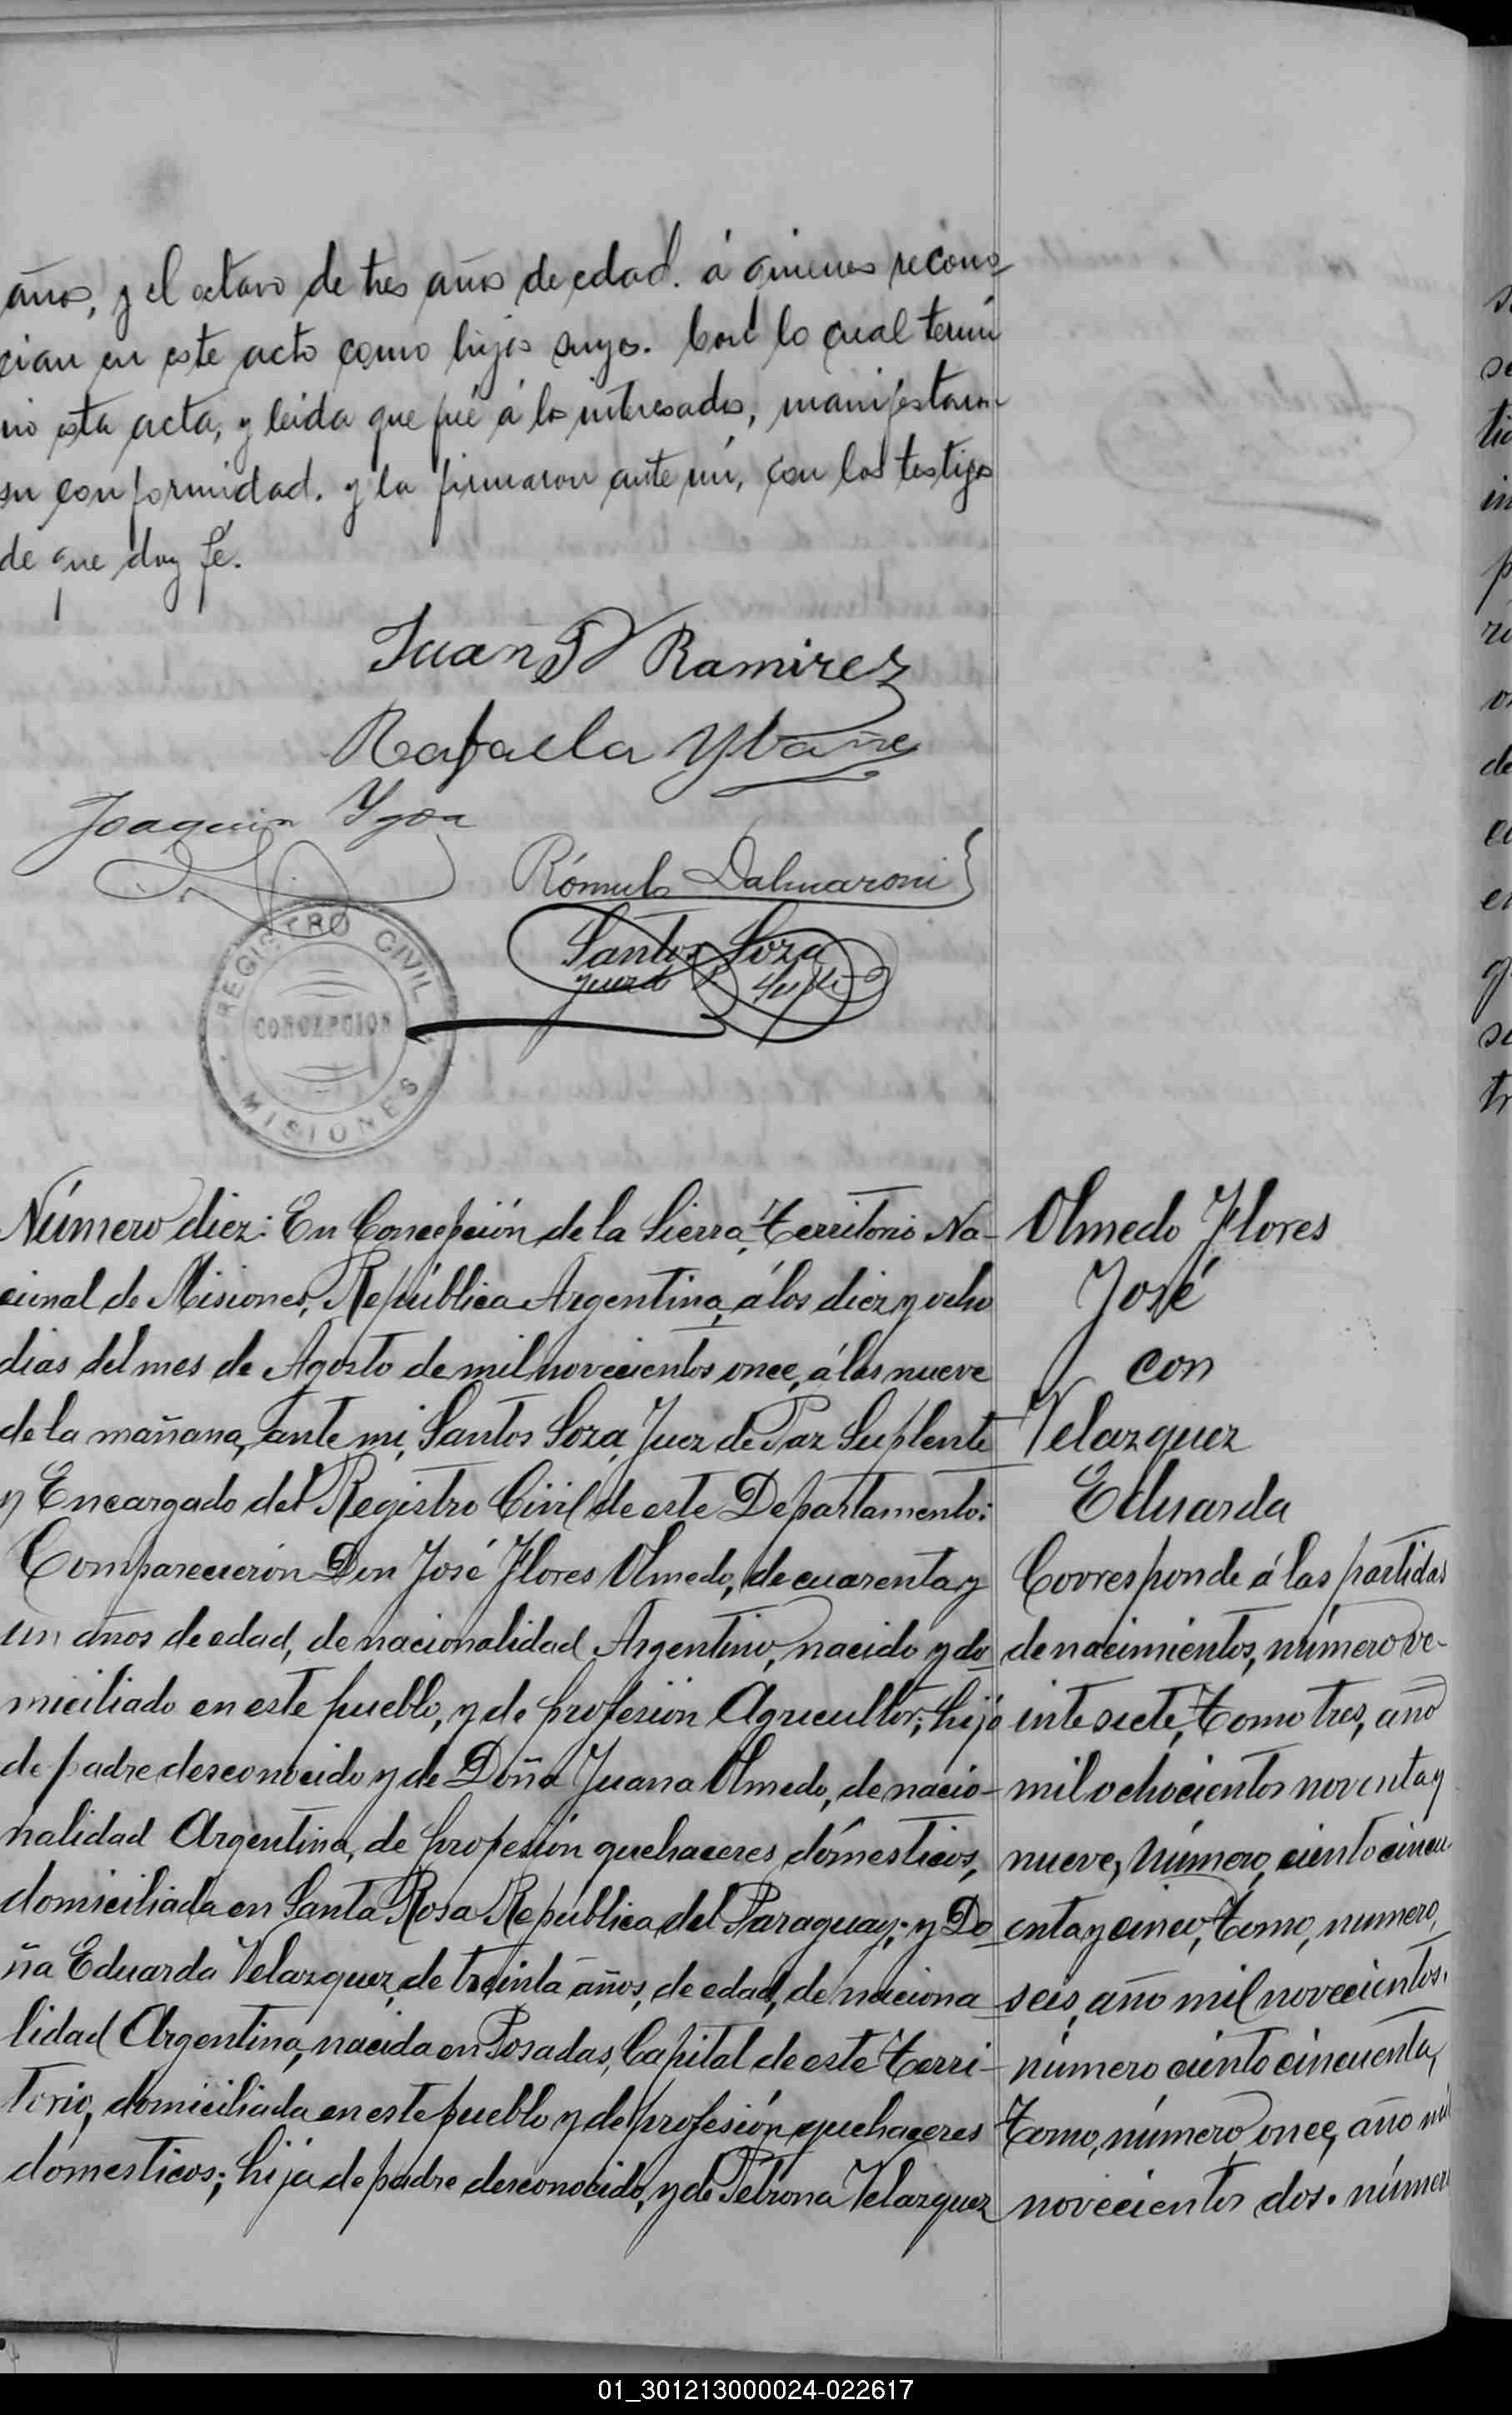 años, y el octavo de tres años de edad. á quienes recono-
cian en este acto como hijos suyos. Con lo cual termi
nó esta acta, y leida que fué á los interesados, manifestaron
su conformidad. y la firmaron ante mi, con los testigos
de que doy fé.
Juan Ramirez
Rafaela Ybañe
Joaquin
Rómulo Dalmaroni
Santos Soza
Juez de P. Suplte
REGISTRO CIVIL
CONCEPCION
MISIONES
Número diez: En Concepción de la Sierra, Territorio Na-
cional de Misiones, República Argentina, á los diez y ocho
dias del mes de Agosto de mil novecientos once, á las nueve
de la mañana, ante mi, Santos Soza, Juez de Paz Suplente
y Encargado del Registro Civil de este Departamento:
Comparecieron Don José Flores Olmedo, de cuarenta y
un años de edad, de nacionalidad Argentino, nacido y do
miciliado en este pueblo, y de profesión Agricultor; hijo
de padre desconocido y de Doña Juana Olmedo, de nacio-
nalidad Argentina, de profesión quehaceres domésticos,
domiciliada en Santa Rosa República del Paraguay; y Do
ña Eduarda Velazquez, de treinta años, de edad, de naciona
lidad Argentina, nacida en Posadas, Capital de este Terri-
torio, domiciliada en este pueblo y de profesión quehaceres
domésticos; hija de padre desconocido, y de Petrona Velazquez
Olmedo Flores
José
con
Velazquez
Eduarda
Corresponde á las partidas
de nacimientos, número ve-
inte siete, Tomo tres, año
mil ochocientos noventa y
nueve, número, ciento cincu-
enta y cinco, Tomo, numero,
seis, año mil novecientos.
número ciento cincuenta,
Tomo, número once, año mil
novecientos dos. número
01_301213000024-022617